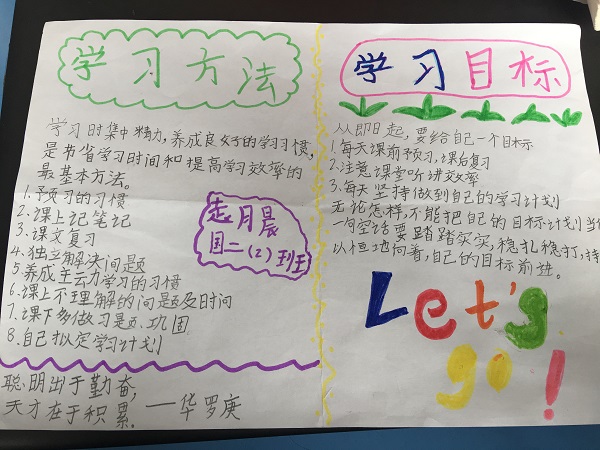 学习方法
学习时集中精力,养成良好的学习习惯,
是节省学习时间和提高学习效率的
最基本方法。
1.予习的习惯
2.课上记笔记
3.课文复习
4.独立解决问题
5.养成主动学习的习惯
6.课上不理解的问题及时问
7.课下多做习题、巩固
8.自己拟定学习计划
赵月晨
国二(2)班
聪明出于勤奋,
天才在于积累.——华罗庚
学习目标
从即日起,要给自己一个目标
1.每天课前予习,课后复习
2.注意课堂听讲效率
3.每天坚持做到自己的学习计划
无论怎样,不能把自己的目标计划当作
一句空话要踏踏实实,稳扎稳打,持
以恒地向着,自己的目标前进。
Let's
go!